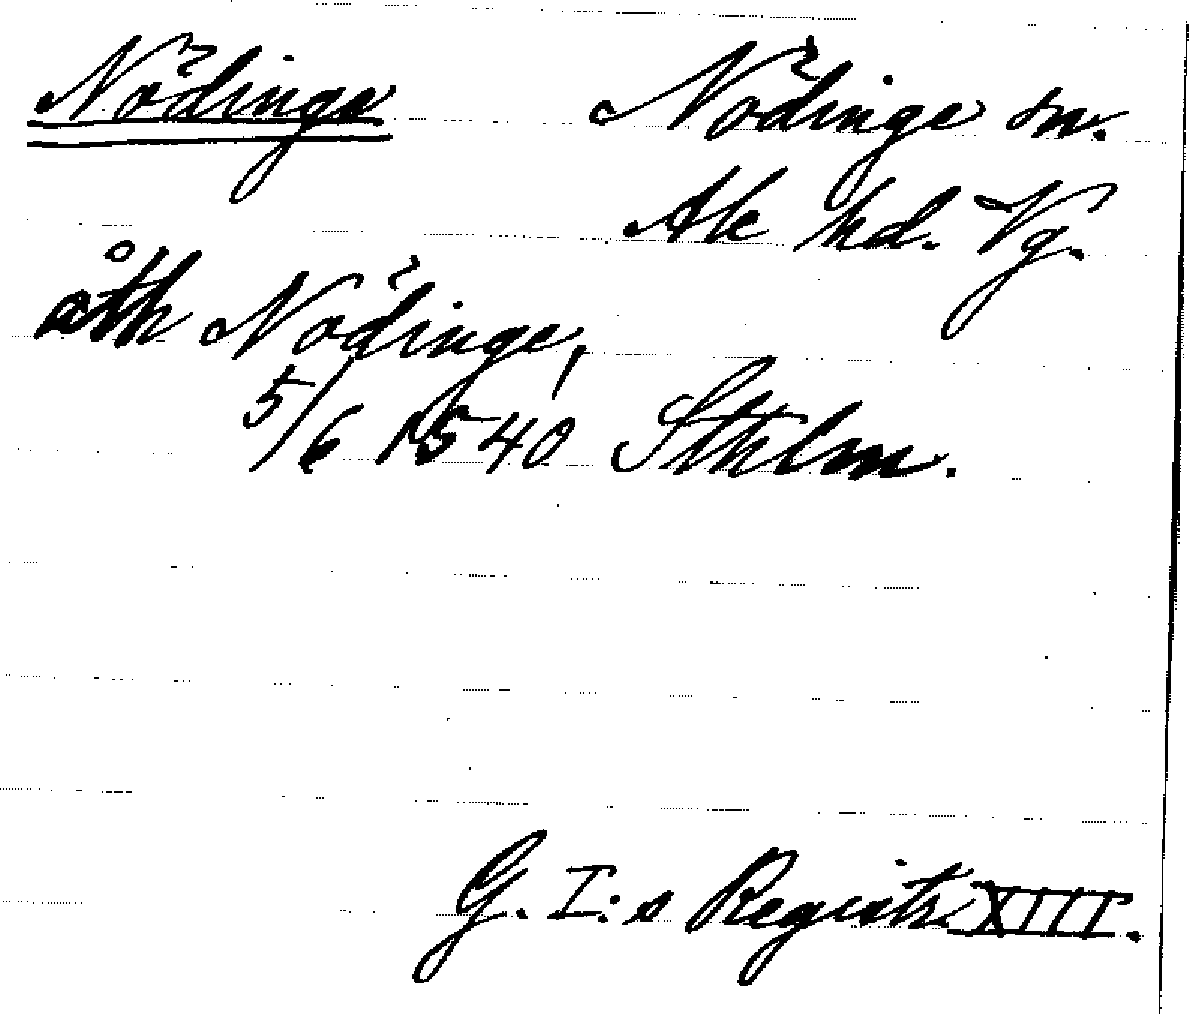 Nödinge Nödinge sn.
Ale hd. Vg.
åth Nödinge,
5/6 1540 Sthlm.
G. I:s Registr. XIII.